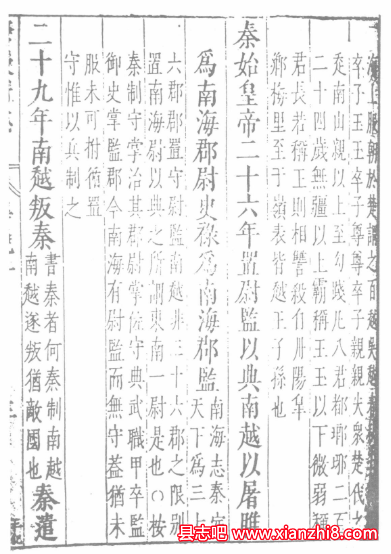 海上服朝於楚謂之百越
卒子玉玉卒子尊尊卒子親親失衆楚代之
奔南山親以上至勾踐凡八君都瑯琊二百
二十四歲無疆以上霸稱王王以下微弱稱
君長若稱王則相讐殺自丹陽皐
鄉梅里至于嶺表皆越王子孫也
秦始皇帝二十六年置尉監以典南越以屠睢
爲南海郡尉史祿爲南海郡監南海志秦定天下爲三十
六郡郡置守尉監南越非三十六郡之限別
置南海尉以典之所謂東南一尉是也○按
秦制守掌治其郡尉掌佐守典武職甲卒監
御史掌監郡今南海有尉監而無守蓋猶未
服未可拊循置
守惟以兵制之
二十九年南越叛秦書秦者何秦制南越南越遂叛猶敵國也秦遣
县志吧
www.xianzhi8.com